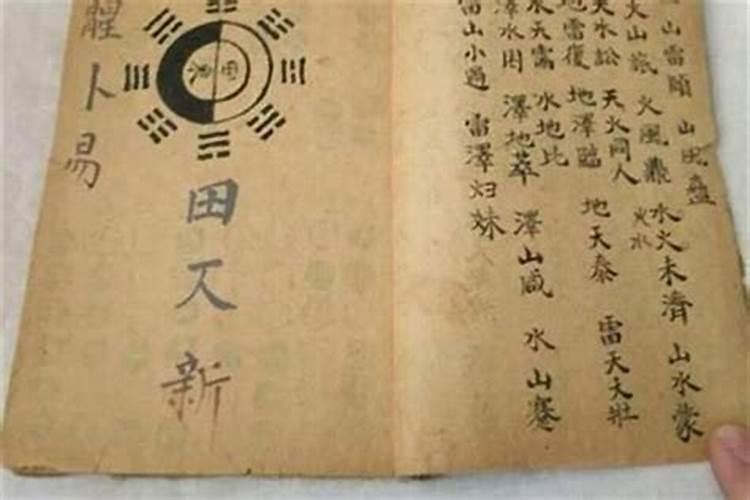 山雷頤
山風蠱
火山旅
火風鼎
火水
水火未濟
山水蒙
天水訟
天火同人
地雷復
地澤臨
地天泰
雷天大壯
水天需
水地比
澤水困
澤地萃
澤山咸
水山蹇
雷山小過
雷澤归妹
卜易
田又新